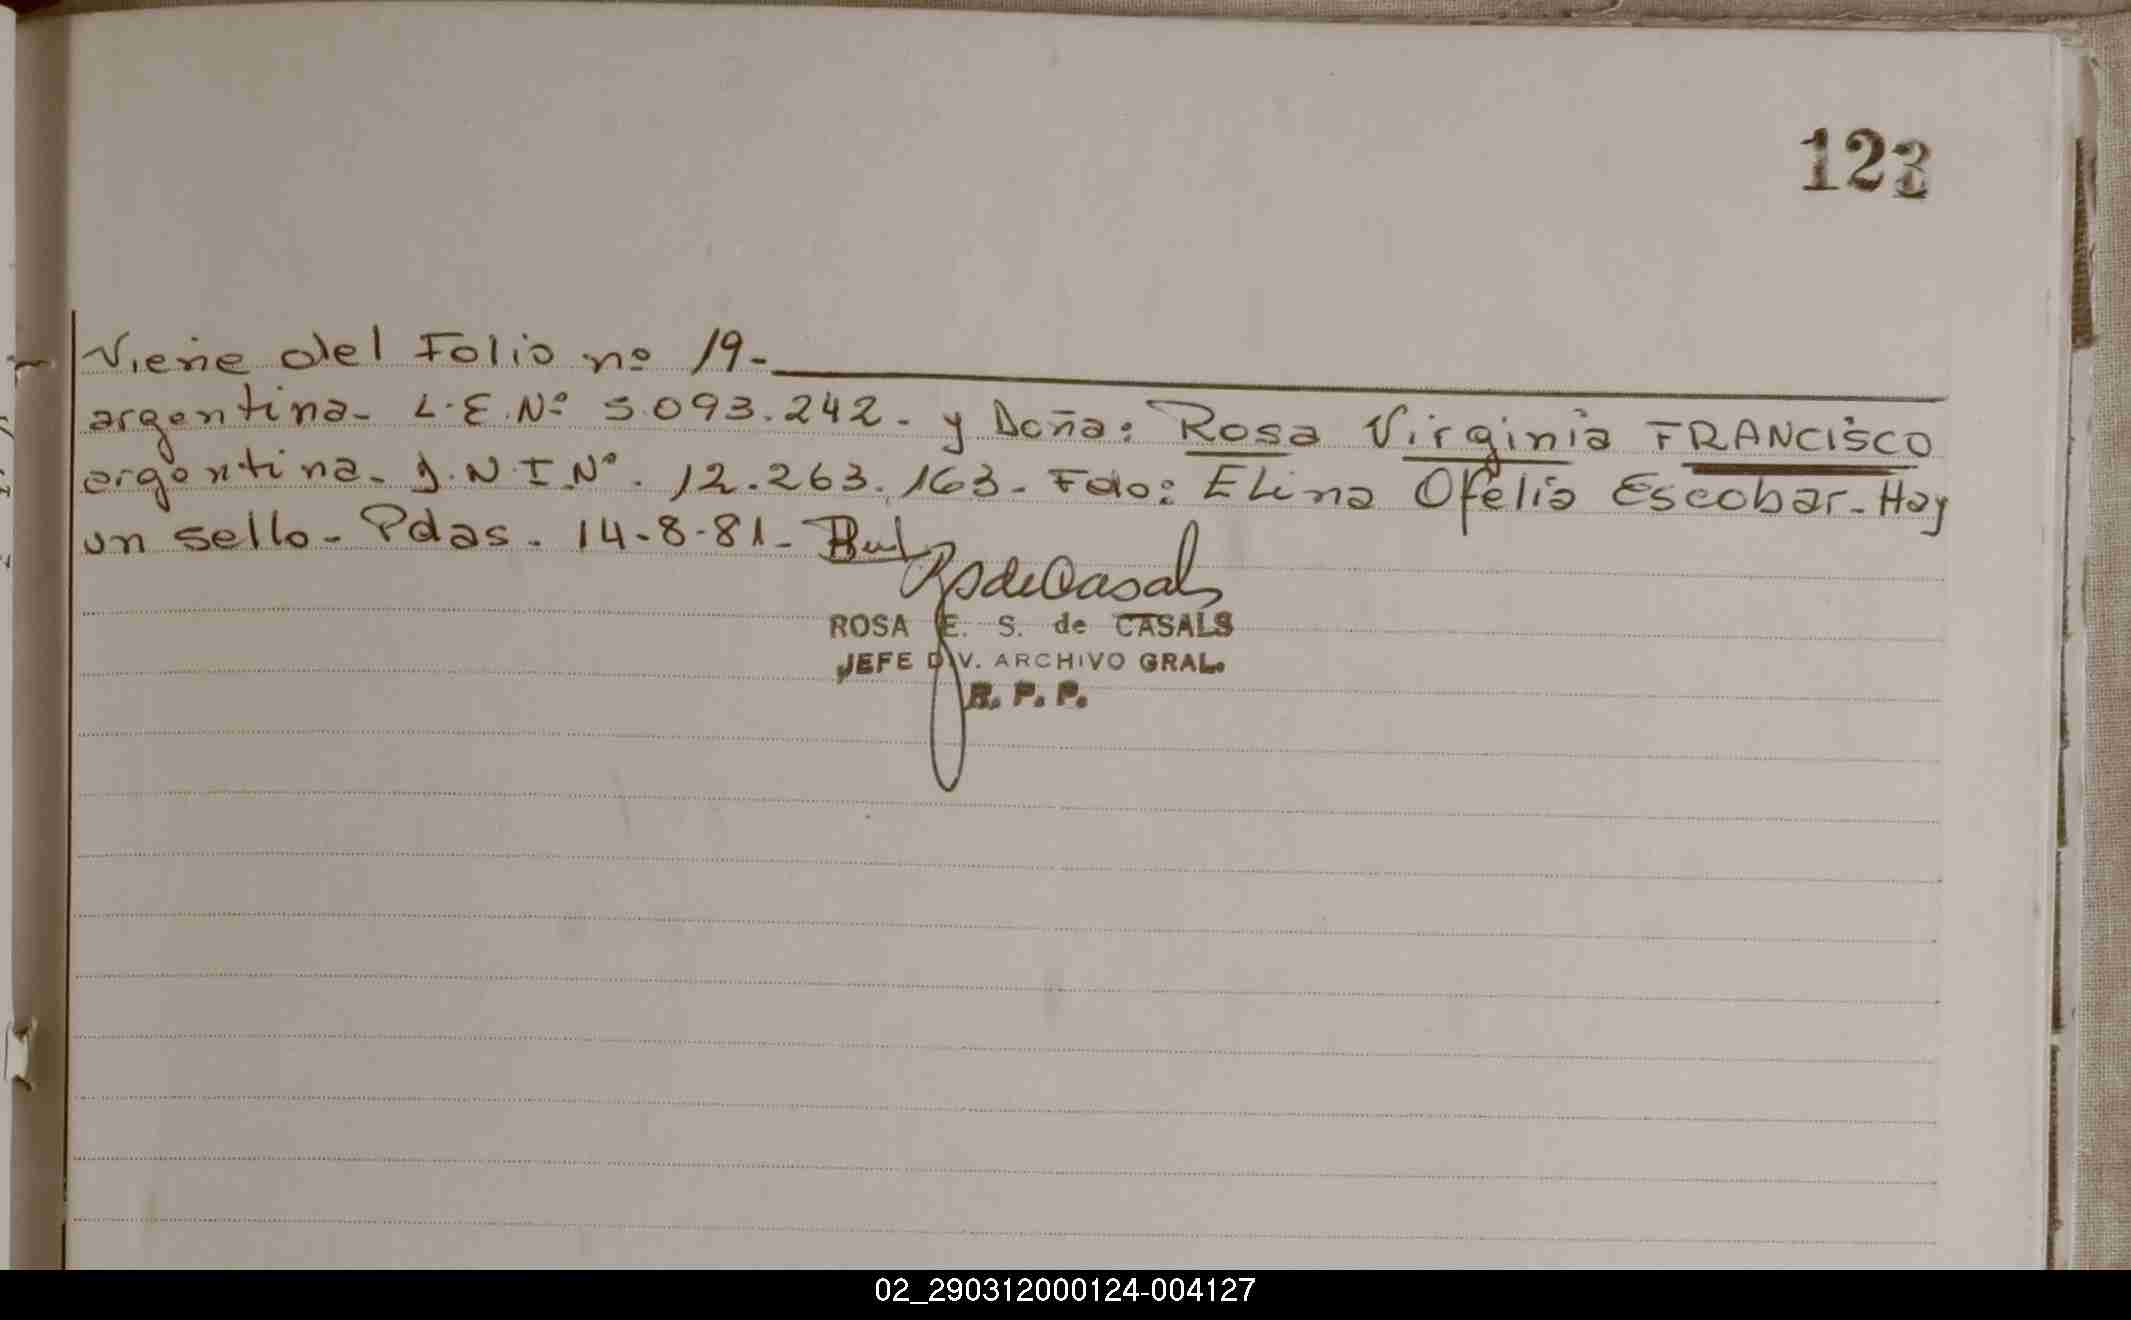 123
Viene del Folio nº 19-
argentina- L.E.Nº 5.093.242- y Doña: Rosa Virginia FRANCISCO
argentina- D.N.I.Nº. 12.263.163- Fdo: Elina Ofelia Escobar- Hay
un sello- Pdas. 14-8-81-
RSdeCasals
ROSA E. S. de CASALS
JEFE DIV. ARCHIVO GRAL.
R. P. P.
02_290312000124-004127